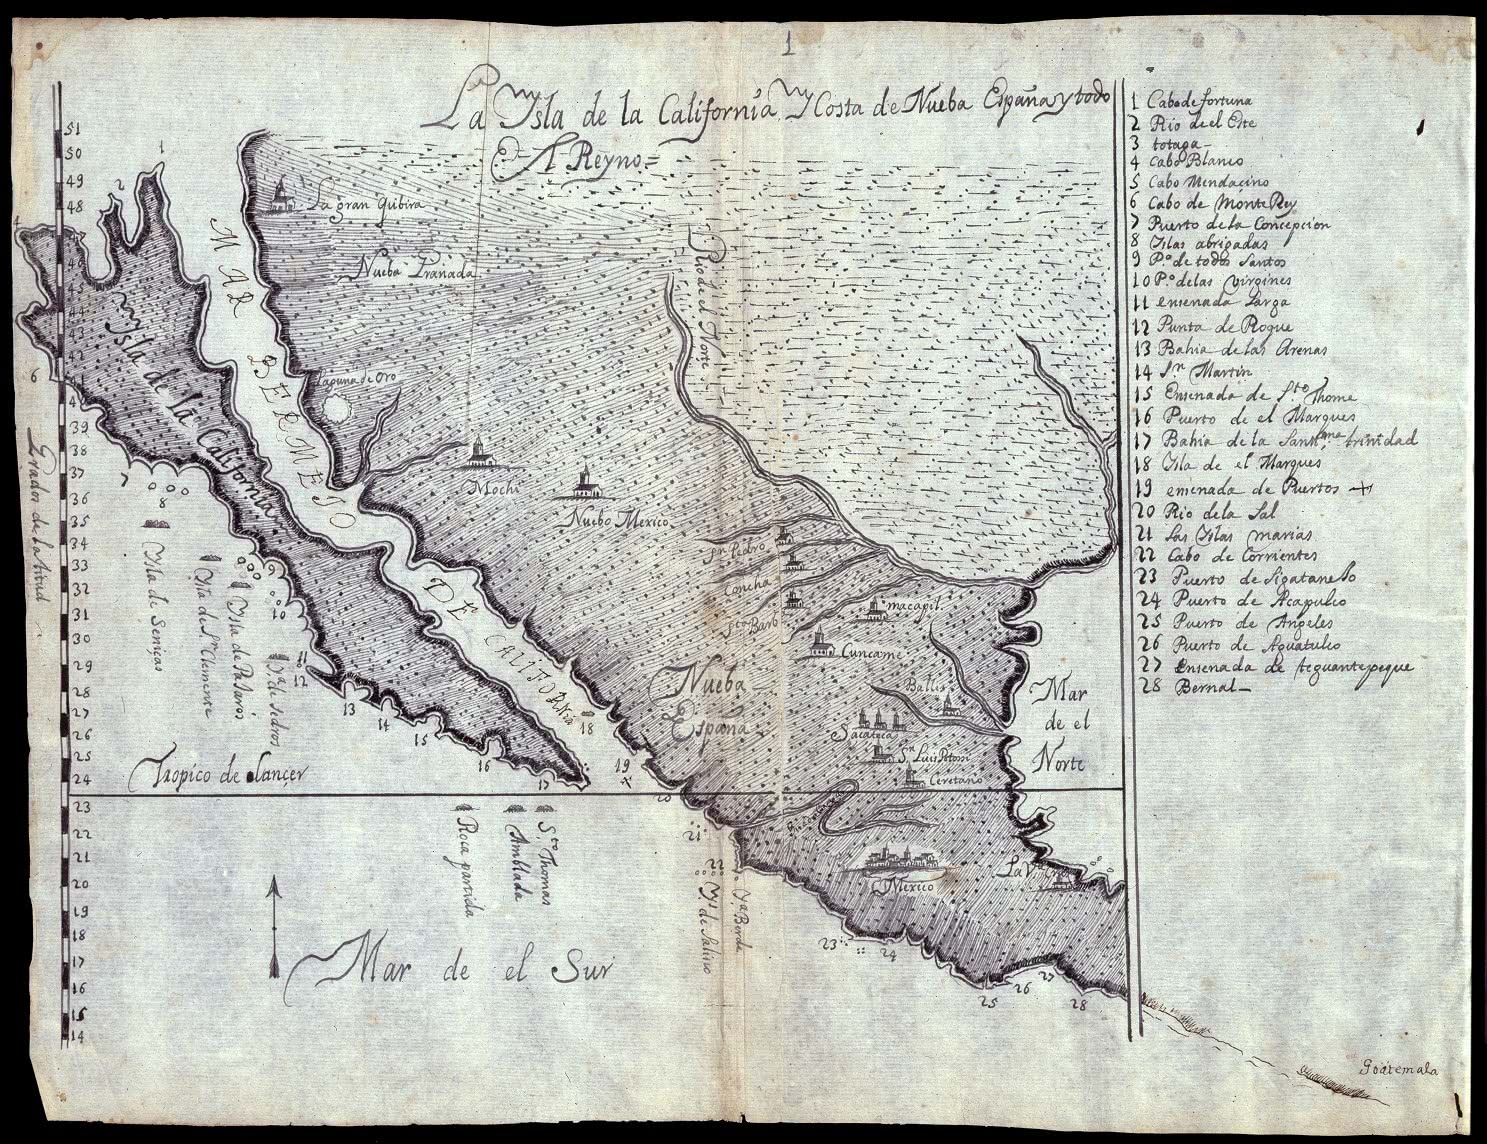 1
La Ysla de la California Y Costa de Nueba España y todo
El Reyno=
51
50
49
48
46
45
44
43
42
41
39
38
37
36
35
34
33
32
31
30
29
28
27
26
25
24
23
22
21
20
19
18
17
16
15
14
Grados de latitud
1
2
6
7
8
10
11
12
13
14
15
16
17
18
19
20
21
22
23
24
25
26
27
28
La gran quibira
Nueba Granada
Rio de el Norte
MAR BERMEJO DE CALIFORNIA
Ysla de la California
Laguna de Oro
Mochi
Nuebo Mexico
Sn Pedro
Concha
Sta Barb
macapil
Cuncame
Nueba
España
Ballis
Sacateca
Sn Luis Potossi
Ceretano
Mar
de el
Norte
Ysla de Seniças
Ysla de Sn Clemente
Ysla de Pasaros
Ya de sedros
Tropico de Cançer
Roca partida
Amblada
Sto Thomas
Ys de Salino
Ya Berde
Mexico
La Va Cruz
Mar de el Sur
1 Cabo de fortuna
2 Rio de el Este
3 totaga
4 Cabo Blanco
5 Cabo Mendacino
6 Cabo de Monte Rey
7 Puerto de la Concepcion
8 Yslas abrigadas
9 Po de todos Santos
10 Po de las Virgines
11 ensenada Larga
12 Punta de Roque
13 Bahia de las Arenas
14 Sn Martin
15 Ensenada de Sto Thome
16 Puerto de el Marques
17 Bahia de la Santisma trinidad
18 Ysla de el Marques
19 ensenada de Puertos +
20 Rio de la Sal
21 Las Yslas marias
22 Cabo de Corrientes
23 Puerto de Sigatanejo
24 Puerto de Acapulco
25 Puerto de Angeles
26 Puerto de Aguatulco
27 Ensenada de teguantepeque
28 Bernal
Goatemala